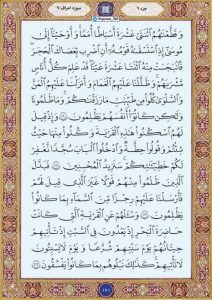 جزء ۹
سوره اعراف ۷
وَقَطَّعْنَٰهُمُ ٱثْنَتَىْ عَشْرَةَ أَسْبَاطًا أُمَمًا وَأَوْحَيْنَآ إِلَىٰ
مُوسَىٰٓ إِذِ ٱسْتَسْقَىٰهُ قَوْمُهُۥٓ أَنِ ٱضْرِب بِّعَصَاكَ ٱلْحَجَرَ
فَٱنۢبَجَسَتْ مِنْهُ ٱثْنَتَا عَشْرَةَ عَيْنًا قَدْ عَلِمَ كُلُّ أُنَاسٍ
مَّشْرَبَهُمْ وَظَلَّلْنَا عَلَيْهِمُ ٱلْغَمَٰمَ وَأَنزَلْنَا عَلَيْهِمُ ٱلْمَنَّ
وَٱلسَّلْوَىٰ كُلُوا۟ مِن طَيِّبَٰتِ مَا رَزَقْنَٰكُمْ وَمَا ظَلَمُونَا
وَلَٰكِن كَانُوٓا۟ أَنفُسَهُمْ يَظْلِمُونَ ۝ وَإِذْ قِيلَ
لَهُمُ ٱسْكُنُوا۟ هَٰذِهِ ٱلْقَرْيَةَ وَكُلُوا۟ مِنْهَا حَيْثُ
شِئْتُمْ وَقُولُوا۟ حِطَّةٌ وَٱدْخُلُوا۟ ٱلْبَابَ سُجَّدًا نَّغْفِرْ
لَكُمْ خَطِيٓـَٰٔتِكُمْ سَنَزِيدُ ٱلْمُحْسِنِينَ ۝ فَبَدَّلَ
ٱلَّذِينَ ظَلَمُوا۟ مِنْهُمْ قَوْلًا غَيْرَ ٱلَّذِى قِيلَ لَهُمْ
فَأَرْسَلْنَا عَلَيْهِمْ رِجْزًا مِّنَ ٱلسَّمَآءِ بِمَا كَانُوا۟
يَظْلِمُونَ ۝ وَسْـَٔلْهُمْ عَنِ ٱلْقَرْيَةِ ٱلَّتِى كَانَتْ
حَاضِرَةَ ٱلْبَحْرِ إِذْ يَعْدُونَ فِى ٱلسَّبْتِ إِذْ تَأْتِيهِمْ
حِيتَانُهُمْ يَوْمَ سَبْتِهِمْ شُرَّعًا وَيَوْمَ لَا يَسْبِتُونَ
لَا تَأْتِيهِمْ كَذَٰلِكَ نَبْلُوهُم بِمَا كَانُوا۟ يَفْسُقُونَ ۝